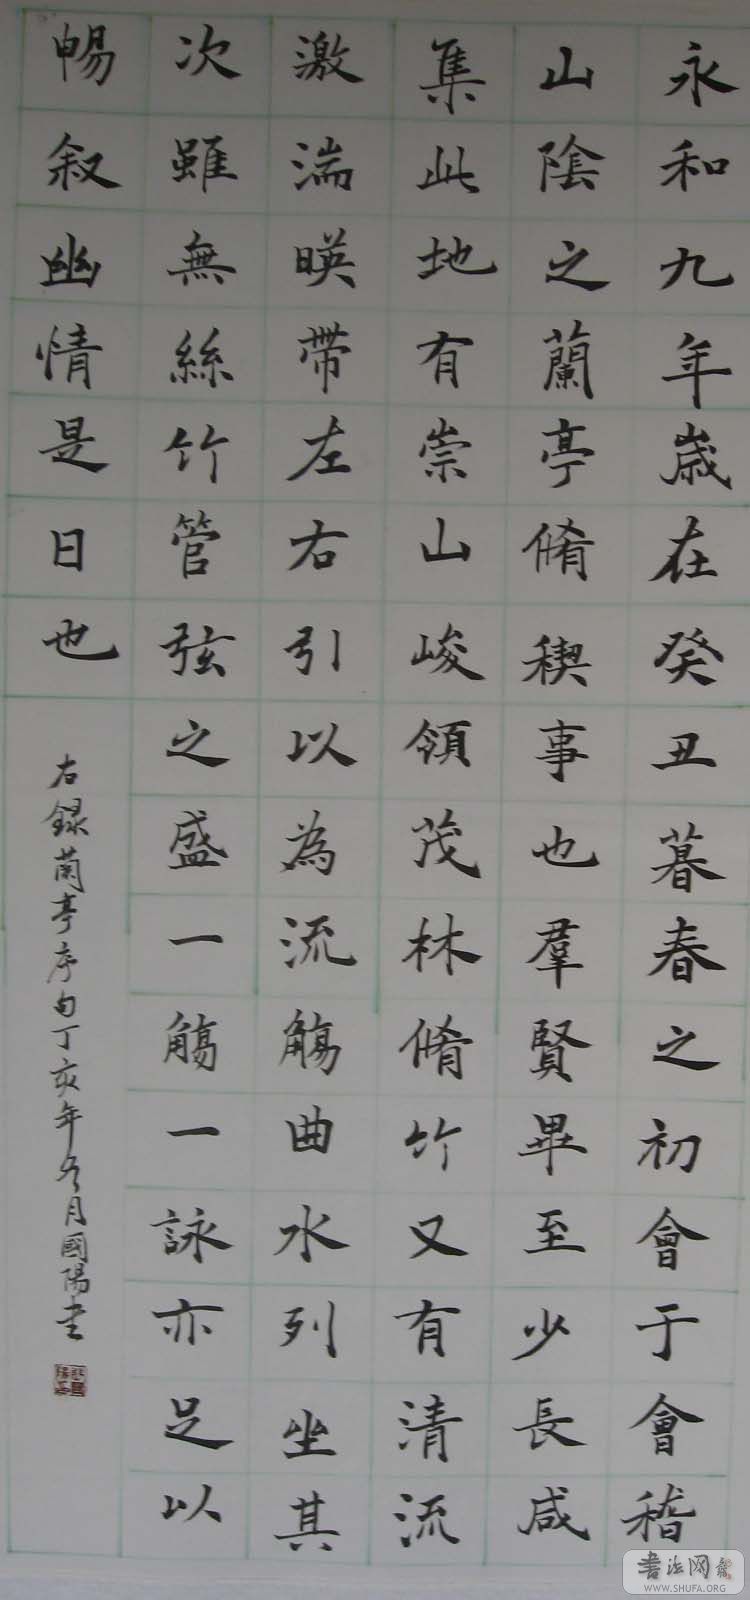 永和九年歲在癸丑暮春之初會于會稽
山陰之蘭亭脩稧事也羣賢畢至少長咸
集此地有崇山峻領茂林脩竹又有清流
激湍暎帶左右引以為流觴曲水列坐其
次雖無絲竹管弦之盛一觴一詠亦足以
暢叙幽情是日也
右録蘭亭序句丁亥年冬月國陽書
書法网
WWW.SHUFA.ORG